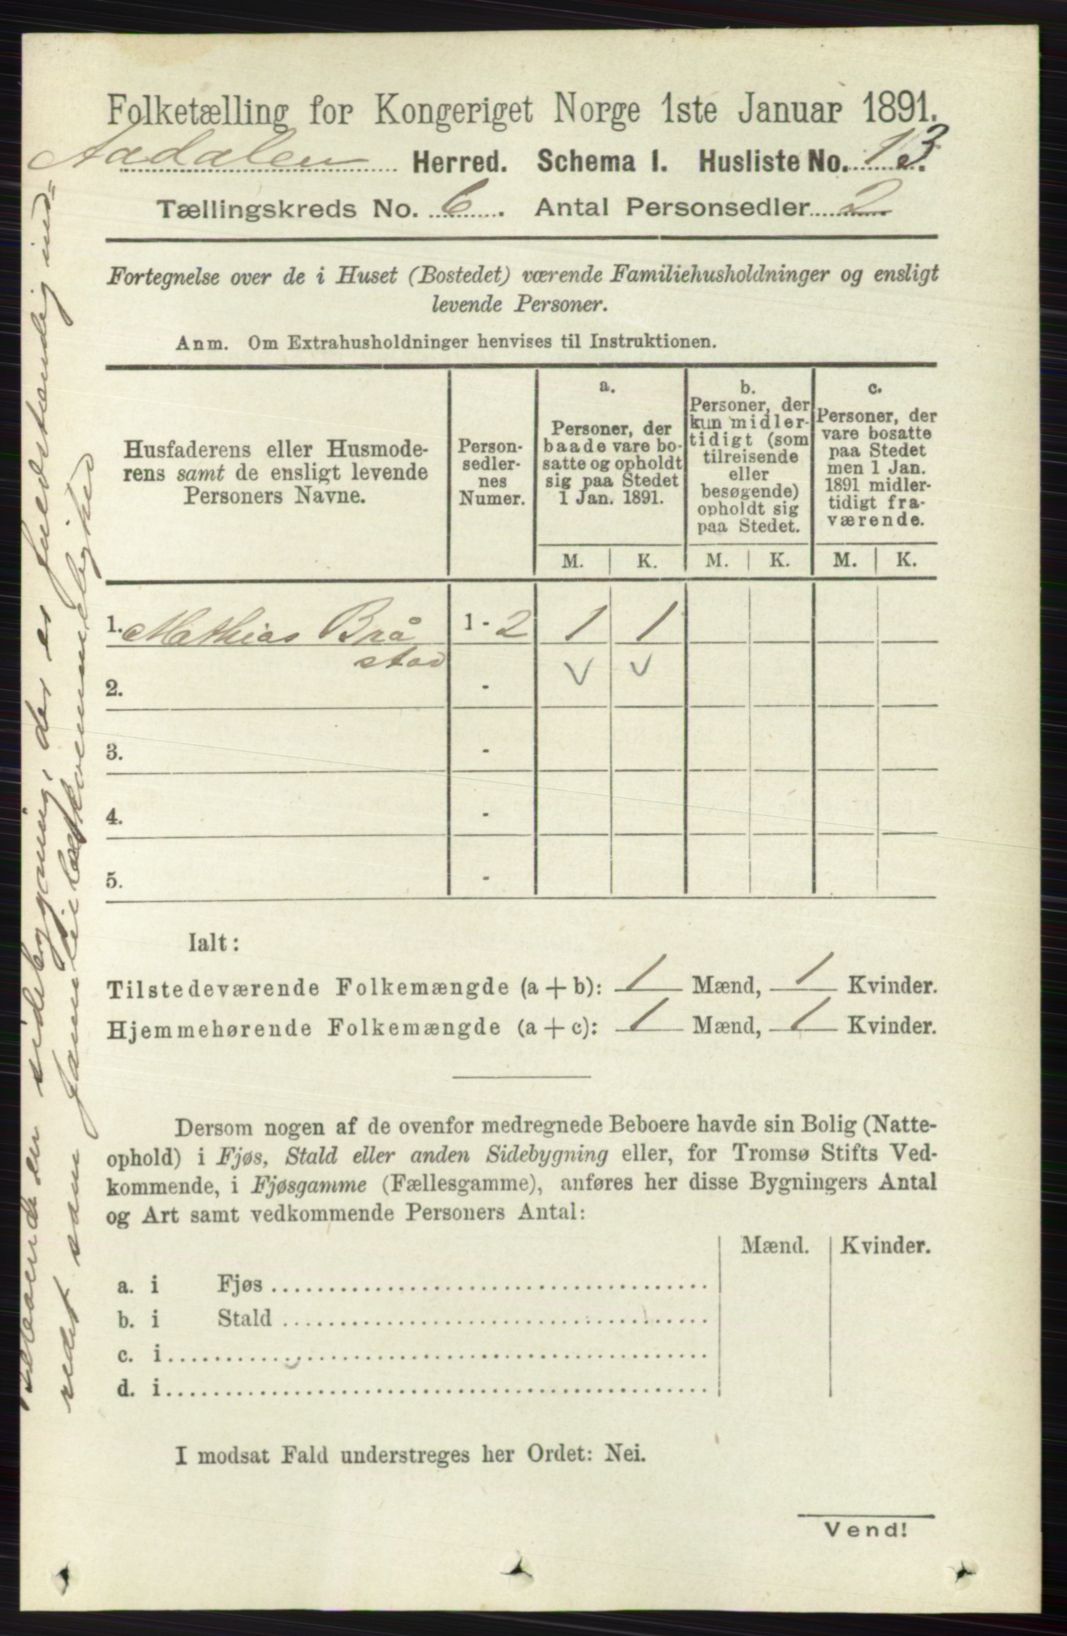 Folketælling for Kongeriget Norge 1ste Januar 1891.
Aadalen Herred. Schema I. Husliste No. 13.
Tællingskreds No. 6. Antal Personsedler 2
Fortegnelse over de i Huset (Bostedet) værende Familiehusholdninger og ensligt
levende Personer.
Anm. Om Extrahusholdninger henvises til Instruktionen.
Husfaderens eller Husmode-
rens samt de ensligt levende
Personers Navne.
Person-
sedler-
nes
Numer.
a.
Personer, der
baade vare bo-
satte og opholdt
sig paa Stedet
1 Jan. 1891.
b.
Personer, der
kun midler-
tidigt (som
tilreisende
eller
besøgende)
opholdt sig
paa Stedet.
c.
Personer, der
vare bosatte
paa Stedet
men 1 Jan.
1891 midler-
tidigt fra-
værende.
M. K. M. K. M. K.
1. Mathias Brå 1 - 2 1 1
stad
2. - V V
3. -
4. -
5. -
Ialt:
Tilstedeværende Folkemængde (a + b): 1 Mænd, 1 Kvinder.
Hjemmehørende Folkemængde (a + c): 1 Mænd, 1 Kvinder.
Dersom nogen af de ovenfor medregnede Beboere havde sin Bolig (Natte-
ophold) i Fjøs, Stald eller anden Sidebygning eller, for Tromsø Stifts Ved-
kommende, i Fjøsgamme (Fællesgamme), anføres her disse Bygningers Antal
og Art samt vedkommende Personers Antal:
Mænd. Kvinder.
a. i Fjøs
b. i Stald
c. i
d. i
I modsat Fald understreges her Ordet: Nei.
Vend!
Beboende en sidebygning, der er fuldstændig ind-
redet som familiebekvemmelighed